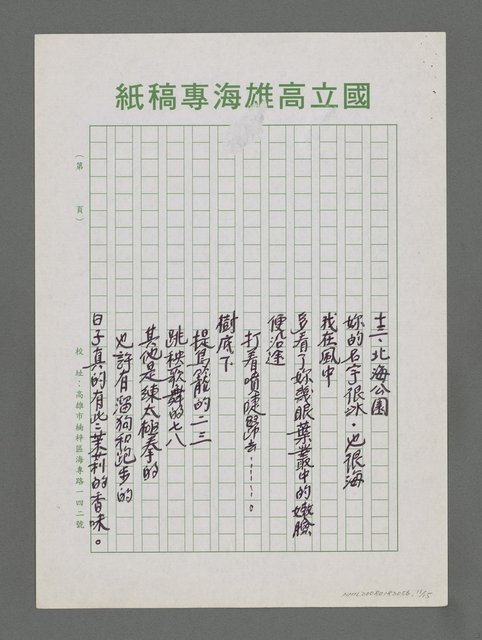 國立高雄海專稿紙
十三、北海公園
妳的名字很冰，也很海
我在風中
多看了妳幾眼葉叢中的嫩臉
便沿途
打着噴嚏歸去………。
樹底下
提鳥籠的二三
跳秧歌舞的七八
其他是練太極拳的
也許有溜狗和跑步的
日子真的有些茉莉的香味。
（第　頁）
校址：高雄市楠梓區海專路一四二號